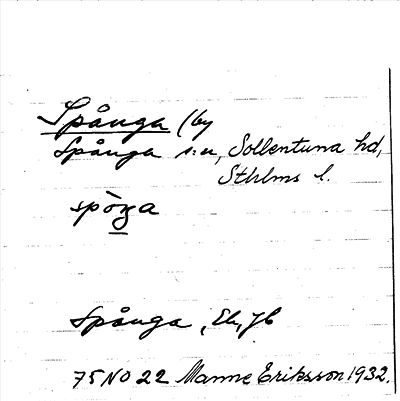 Spånga (by
Spånga s:n, Sollentuna hd,
Sthlms l.
spòŋa
Spånga, Ek, Jb
75 NO 22 Manne Eriksson 1932.